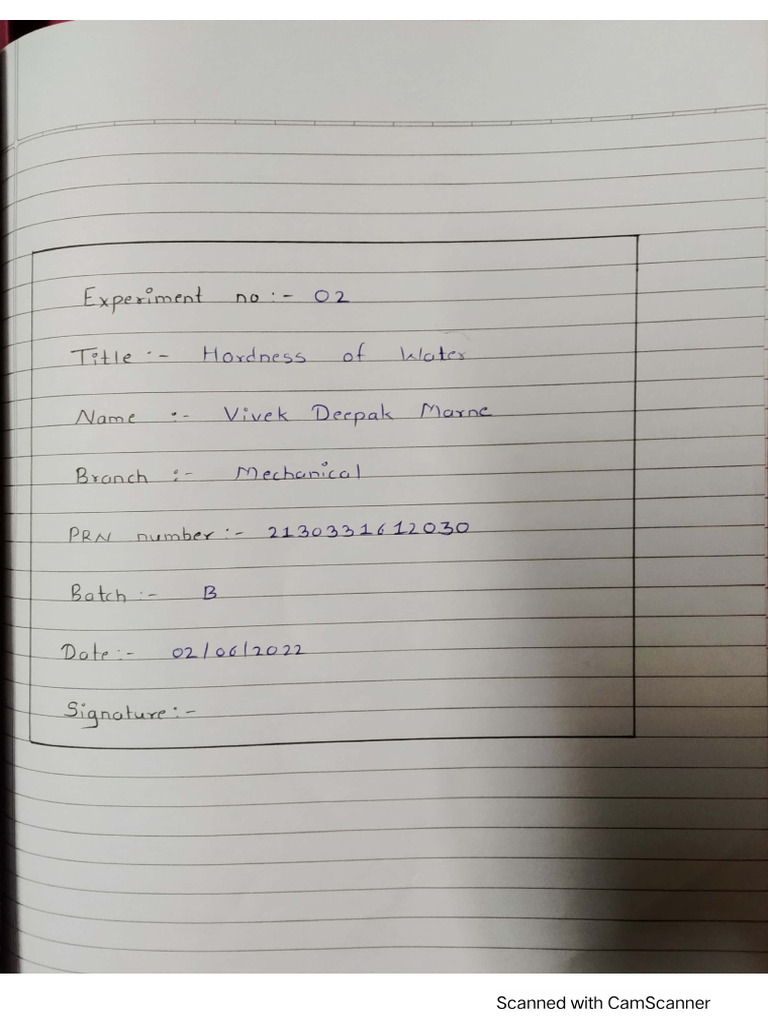 Experiment no :- 02
Title :- Hardness of Water
Name :- Vivek Deepak Marne
Branch :- Mechanical
PRN number :- 2130331612030
Batch :- B
Date :- 02/06/2022
Signature :-
Scanned with CamScanner